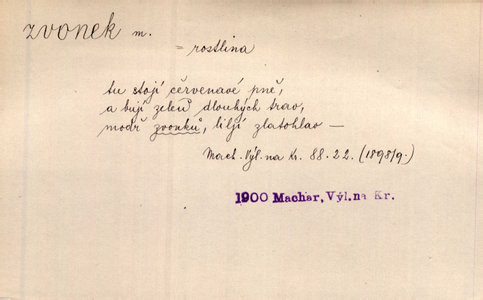 zvonek m.
= rostlina
tu stojí červenavé pně,
a bují zeleň dlouhých trav,
modř zvonků, lilií zlatohlav —
Mach. Výl. na Kr. 88. 22. (1898/9.)
1900 Machar, Výl. na Kr.